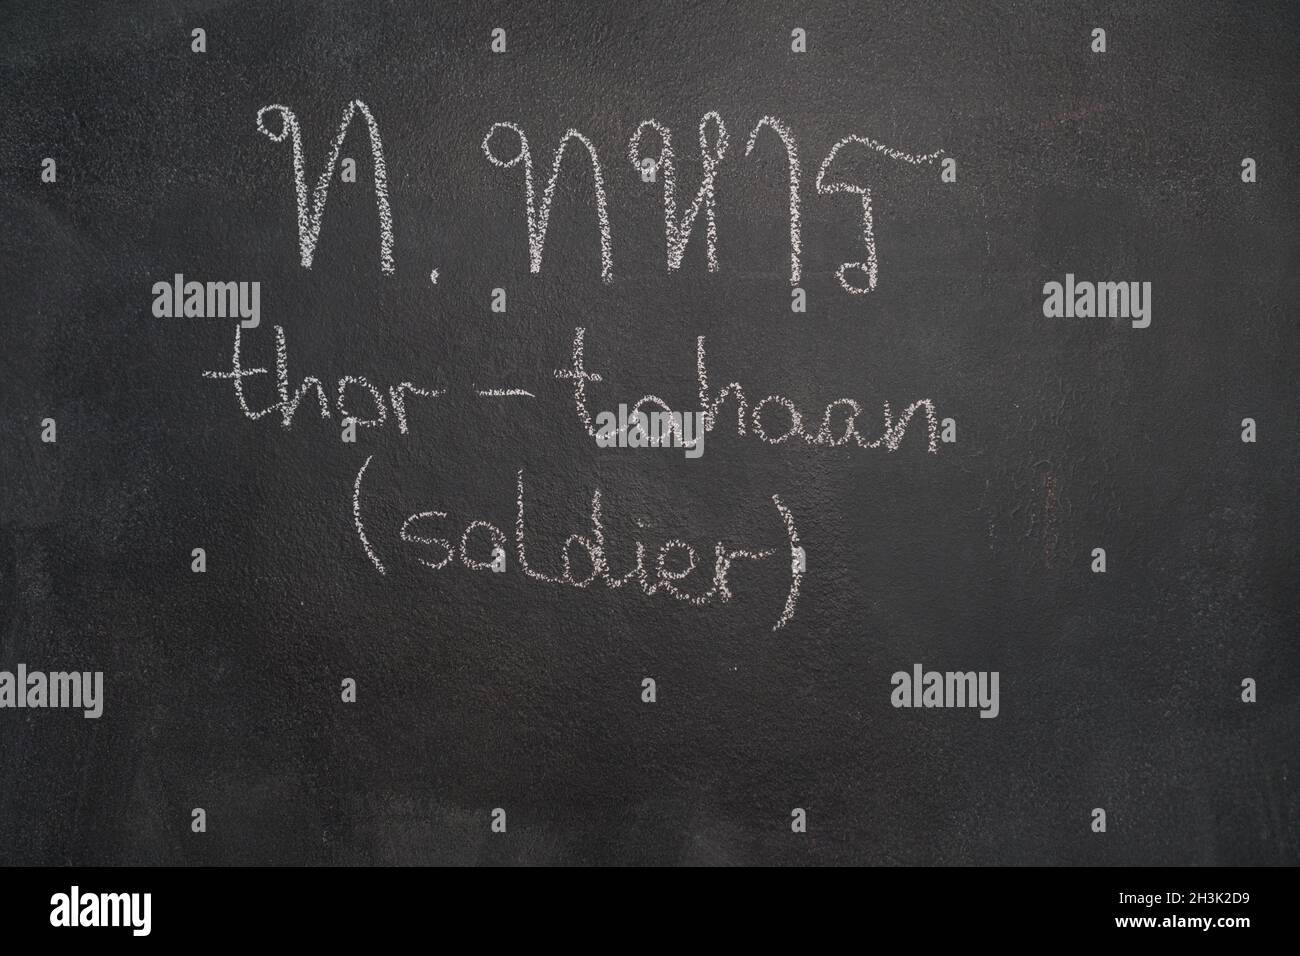 ท. ทหาร
thor - tahaan
(soldier)
alamy
alamy
alamy
alamy
alamy
Image ID: 2H3K2D9
www.alamy.com